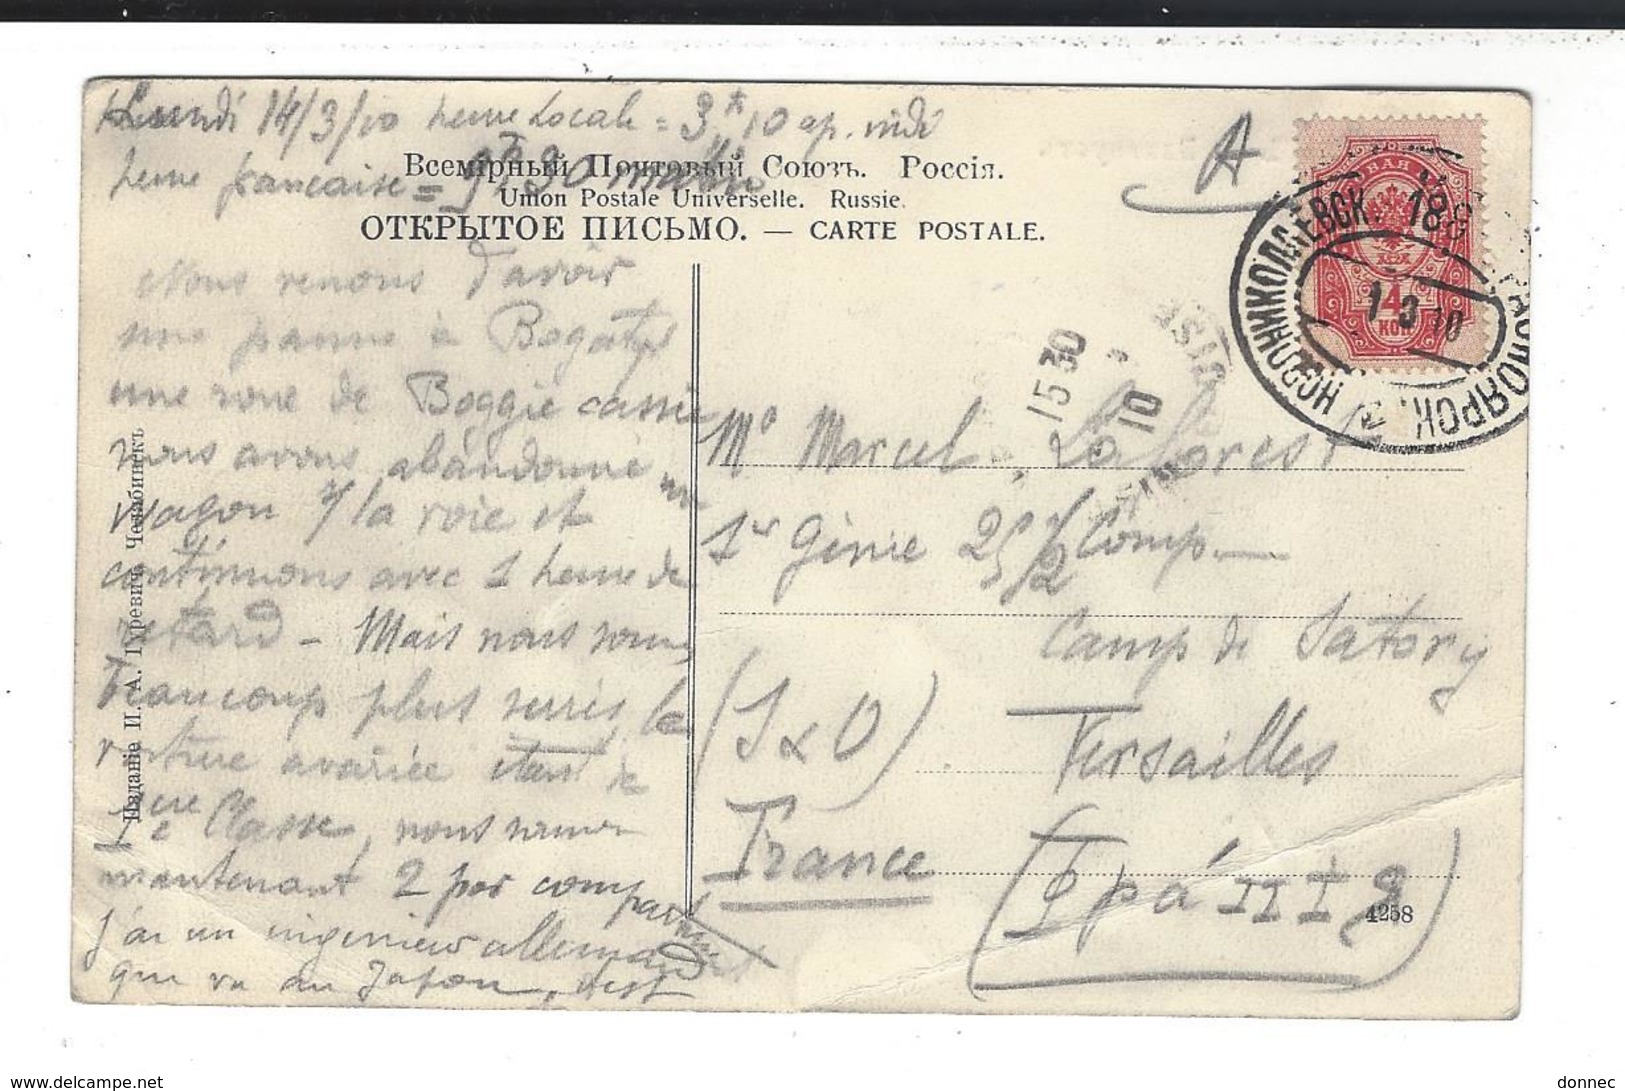 Lundi 14/3/10 heure Locale = 3h,10 ap. midi
heure francaise = 9h30 matin
Всемірный Почтовый Союзъ. Россія.
Union Postale Universelle. Russie.
ОТКРЫТОЕ ПИСЬМО. — CARTE POSTALE.
Nous venons d'avoir
une panne à
une roue de Boggie cassée
nous avons abandonné un
wagon s/ la voie et
continuons avec 1 heure de
retard – Mais nous sommes
beaucoup plus serrés, la
voiture avariée étant de
1ère Classe, nous sommes
maintenant 2 par compartiment
j'ai un ingenieur allemand
qui va au Japon, c'est
Изданіе И. А. Гуревичъ Челябинскъ
A
НОВОНИКОЛАЕВСК. 188
1 3 10
14
КОП
15 30
10
Mr Marcel Laforest
1er Génie 25/2 Comp
Camp de Satory
Versailles
(S & O)
France
4258
www.delcampe.net
donnec